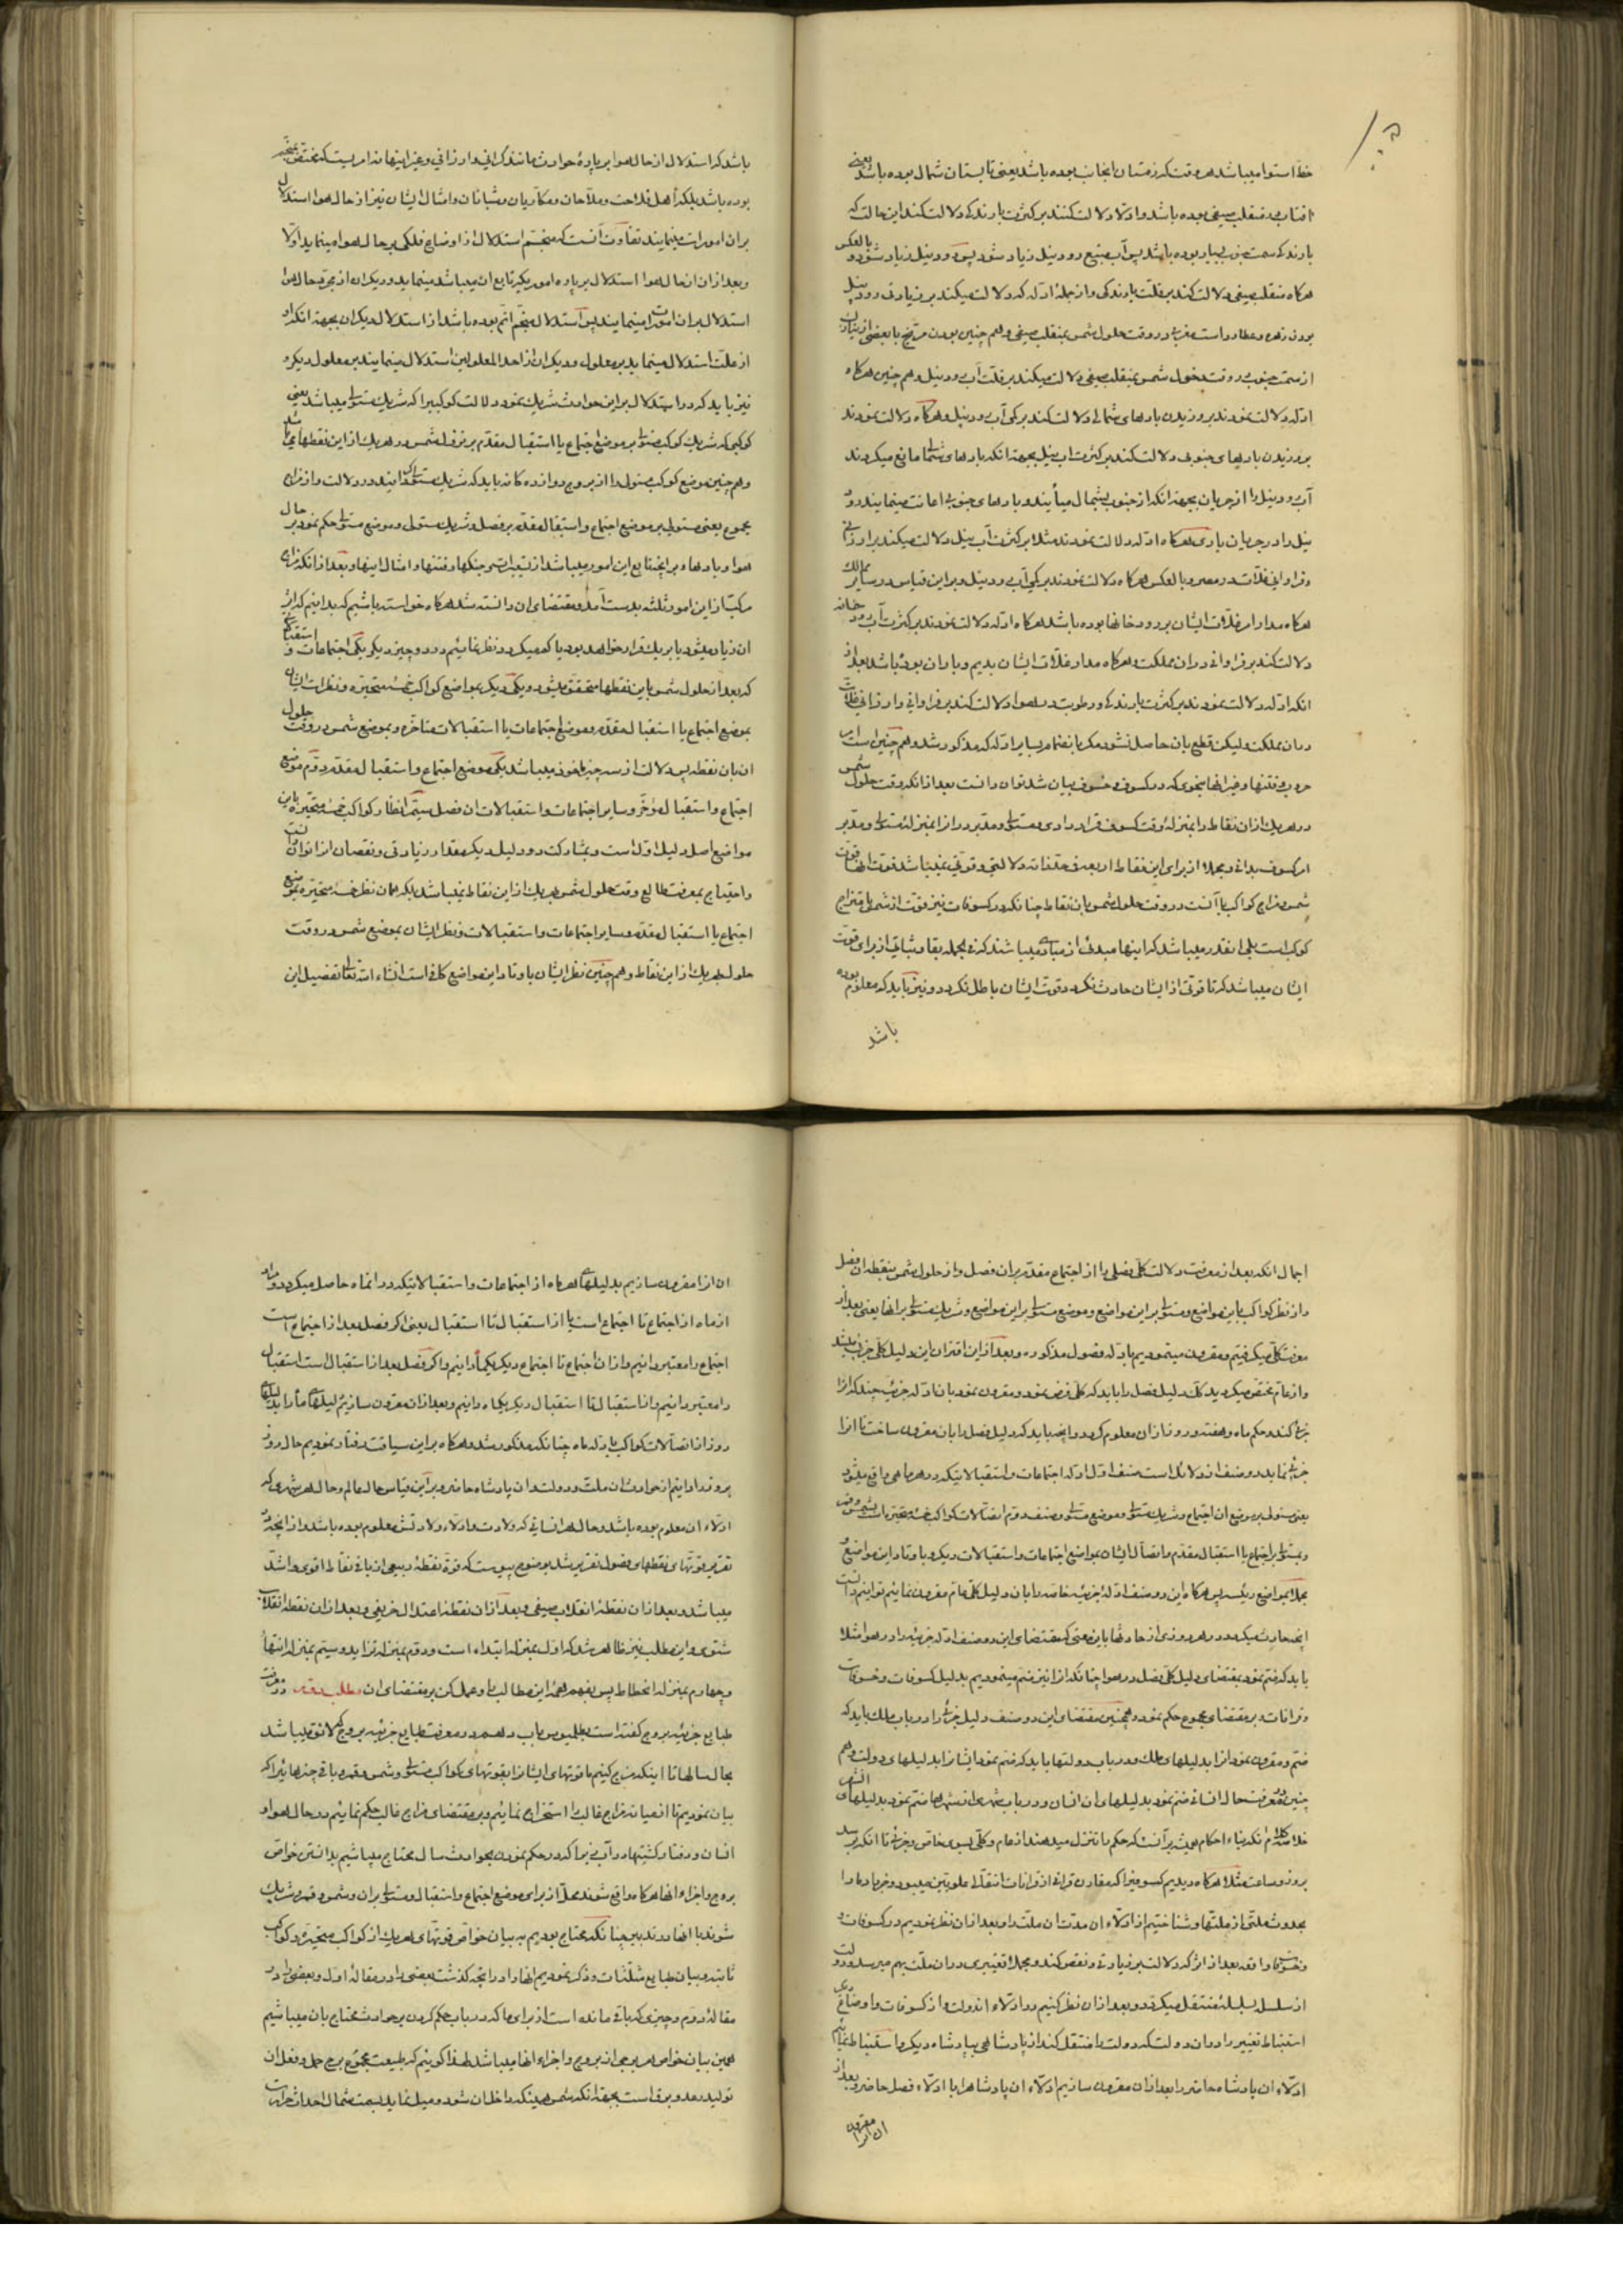 خط استوا میباشد هر وقت که زمستان انجانب بوده باشد یعنی تابستان شمال بوده باشد یعنی
افتاب در منقلب صیفی بوده باشد و ادلّا دلالت کنند بر کثرت بارندکی دلالت کند این حالت که
بارندکی سمت جنوب بسیار بوده باشد پس آب منبع رود نیل زیاد شود پس رود نیل زیاد شود و بالعکس
هرکاه منقلب صیفی دلالت کند بر قلت بارندکی و از جملهٔ ادله که دلالت میکند بر زیادتی رود نیل
بودن زهره و عطارد است مغربی در وقت حلول شمس بمنقلب صیفی و هم چنین بودن مریخ با بعضی از
از سمت جنوب در وقت دخول شمس بمنقلب صیفی دلالت میکند بر قلت آب رود نیل و هم چنین هرکاه
ادله دلالت نمودند بر وزیدن بادهای شمالی دلالت کند بر کمی آب رود نیل و هرکاه دلالت نمودند
بر وزیدن بادهای جنوبی دلالت کند بر کثرت اب نیل بجهة انکه بادهای شمالی مانع میکردند
آب رود نیل را از جریان بجهة انکه از جنوب بشمال میآیند و بادهای جنوبی اعانت مینمایند رود
نیل را در جریان پاری هرکاه ادله دلالت نمودند مثلا بر کثرت آب نیل دلالت میکند بر ارزانی
و فراوانی غلات در مصر و بالعکس هرکاه دلالت نمودند بر کمی آب رود نیل و بر این قیاس در سایر ممالک
هرکاه مدار امر غلات ایشان بر رودخانها بوده باشد هرکاه ادله دلالت نمودند بر کثرت آب رودخانه
دلالت کند بر فراوانی در ان مملکت و هرکاه مدار غلات ایشان بدیم و باران بوده باشد بعد از
انکه ادله دلالت نمودند بر کثرت بارندکی و رطوبت در هوا دلالت کند بر فراوانی و ارزانی غلات
در ان مملکت و لیکن قطع بان حاصل نشود مکر بانضمام سایر ادله که مذکور شد و هم چنین است امر
در فتنها و غیر انها بنحوی که در کسوف و خسوف بیان شد توان دانست بعد از انکه وقت حلول شمس
در هر یک از ان نقاط را بمنزلهٔ وقت کسوف قرار دادی و مستولی و مدبر در ان را بمنزلهٔ مستولی و مدبر
امر کسوف بدانی و مجملا از برای این نقاط اربعه فی حد ذاته دلالتی و قوتی نمیباشد قوت انها قوت
شمس و مزاج کواکب با آنست در وقت حلول شمس بان نقاط چنانکه در کسوفات نیز قوت از شمس با متزاج
کوکب است بلی اینقدر میباشد که اینها مبدئی از مبادی میباشند که فی الجمله بقا و ثباتی از برای قوت
ایشان میباشد که تا قوتی از ایشان حادث نکردد قوت ایشان باطل نکردد و نیز باید که معلوم بوده
باشد
باشد که استدلال از حال هوا بر پارهٔ حوادث مانند کرانی و ارزانی و غیر اینها نه امریست که مختص بمنجم
بوده باشد بلکه اهل فلاحت و ملاحان و مکاریان و شبانان و امثال ایشان نیز از حال هوا استدلال
بر ان امورات مینمایند تفاوت آنست که منجم استدلال از اوضاع فلکی بر حال هوا مینماید اولا
و بعد از ان از حال هوا استدلال بر پاره امور دیکر تابع ان میباشد مینماید و دیکران از مجرد حال هوا
استدلال بر ان امورات مینمایند پس استدلال منجم اتم بوده باشد از استدلال دیکران بجهة انکه او
از علت استدلال مینماید بر معلول و دیکران از احد المعلولین استدلال مینمایند بر معلول دیکر و
نیز باید که در استدلال بر این حوادث شریک نمود دلالت کوکبی را که شریک مستولی میباشد یعنی
کوکبی که شریک کوکب مستولی بر موضع اجتماع یا استقبال مقدم بر نزول شمس در هر یک از این نقطهای
و هم چنین موضع کوکب مستولی را از بروج دوازده کانه باید که شریک مستولی کردانید در دلالت و از مزاج
مجموع یعنی مستولی بر موضع اجتماع و استقبال مقدم بر فصل و شریک مستولی و موضع مستولی حکم نمود بر حال
هوا و بادها و بر آنچه تابع این امور میباشد از تغیرات و جنکها و فتنها و امثال اینها و بعد از انکه مزاج
مرکب از این امور ثلثه بدست آمد و مقتضای ان دانسته شد هرکاه خواسته باشیم که بدانیم که اثر
ان زیاد میشود یا بر یک قرار خواهد بود یا کم میکردد نظر نمائیم در دو چیز دیکر یکی اجتماعات و استقبالات
که بعد از حلول شمس باین نقطها متحقق میشود و یکی دیکر مواضع کواکب خمسهٔ متحیره و نظرات ایشان
بموضع اجتماع یا استقبال مقدم و موضع اجتماعات یا استقبالات متاخره و بموضع شمس در وقت حلول
ان بان نقطه پس دلالت از سه چیز ماخوذ میباشد یکی موضع اجتماع و استقبال مقدم دوم موضع
اجتماع و استقبال مؤخر و سایر اجتماعات و استقبالات ان فصل سیم انظار کواکب خمسهٔ متحیره باین
مواضع اصل دلیل اول است و بمشارکت دو دلیل دیکر مقدار زیادتی و نقصان از ان توان دانست
و احتیاج بمعرفت طالع وقت حلول شمس بهر یک از این نقاط نمیباشد بلکه همان نظر خمسهٔ متحیره بموضع
اجتماع یا استقبال مقدم و سایر اجتماعات و استقبالات و نظر ایشان بموضع شمس در وقت
حلول بهر یک از این نقاط و هم چنین نظر ایشان باوتاد این مواضع کافی است انشاء الله تعالی تفصیل این
اجمال انکه بعد از معرفت دلالت کلی فصلی را از اجتماع مقدم بر ان فصل و از حلول شمس بنقطه ان فصل
و از نظر کواکب باین مواضع و مستولی بر این مواضع و موضع مستولی بر این مواضع و شریک مستولی بر انها یعنی بعد از
معرفت کلی میکرفتیم و مقرون مینمودیم بادله فصول مذکوره و بعد از این اقتران این دلیل کلی جزئی میشد
و از عام مختص میکردید کذلک دلیل فصل را باید که کلی فرض نمود و مقرون نمود بان ادله جزئیه چند که انرا
جزئی کند در حکم ماه و هفته و روز تا از ان معلوم کردد و انچه باید که دلیل فصل را بان مقرون ساخت تا انرا
جزئی نماید دو صنف از دلائل است صنف اول ادله اجتماعات و استقبالاتیکه در هر ماهی واقع میشود
یعنی مستولی بر موضع ان اجتماع و شریک مستولی و موضع مستولی و صنف دوم اتصالات کواکب خمسهٔ متحیره است بشمس و قمر
و مستولی بر اجتماع یا استقبال مقدم و اتصال ایشان بمواضع اجتماعات و استقبالات دیکر و باوتاد این مواضع و
مجملا بمواضع رئیسه پس هرکاه این دو صنف ادلهٔ جزئیه خاصه را بان دلیل کلی عام مقرون نمائیم توانیم دانست
انچه حادث میکردد در هر روزی از حادثها باین معنی که مقتضای این دو صنف ادله جزئیه را در هوا مثلا
باید که ضم نمود بمقتضای دلیل کلی فصل در هوا چنانکه انرا نیز ضم مینمودیم بدلیل کسوفات و خسوفات
و قرانات و بر مقتضای مجموع حکم نمود و همچنین مقتضای این دو صنف دلیل جزئی را در باب ملک باید که
ضم و مقرون نمود انرا بدلیلهای ملک و در باب دولتها باید که ضم نمود ایشانرا بدلیلهای دولت و هم
چنین در معرفت حال انسانی ضم نمود بدلیلهای ان انسان و در باب شهری از شهرها ضم نمود بدلیلهای ان شهر
خلاصه کلام انکه بناء احکام همیشه بر آنست که حکم ما تنزل میدهند از عام و کلی بسوی خاص و جزئی تا انکه برسد
بروز و ساعت مثلا هرکاه دیدیم کسوفی را که مقارن قرانی از قرانات انتقال علویین میبود و خبر داد ما را
بحدوث ملتی از ملتها و شناختیم از ادلاء ان مدت ان ملت را و بعد از ان نظر نمودیم در کسوفات و
خسوفات واقعه بعد از انکه دلالت بر زیادتی و نقص کند و مجملا تغییری در ان ملت بهم میرسد و دولت
از سلسله بسلسله منتقل میکردد و بعد از ان نظر کنیم در ادلاء اندولت و از کسوفات و اوضاع دیکر
استنباط تغییر را در ان دولت که دولت را منتقل کند از پادشاهی بپادشاه دیکر و استنباط نمائیم
ادلاء ان پادشاه حاضر را بعد از ان مقرون سازیم ادلاء ان پادشاه را با ادلاء فصل حاضر و بعد از
ان انرا مقرون
ان انرا مقرون سازیم بدلیلهای هر ماه از اجتماعات و استقبالاتیکه در انماه حاصل میکردد و مراد
از ماه از اجتماع تا اجتماع است یا از استقبال تا استقبال یعنی اکر فصل بعد از اجتماع است
اجتماع را معتبر دانیم و از ان اجتماع تا اجتماع دیکر یکماه دانیم و اکر فصل بعد از استقبال است استقبال
را معتبر دانیم و از استقبال تا استقبال دیکر یکماه دانیم و بعد از ان مقرون سازیم دلیلهای ماه را بدلیلهای
روز از اتصالات کواکب بادله ماه چنانکه مذکور شد و هرکاه بر این سیاقت رفتار نمودیم حال روز
بروز را دانیم از حوادث ان ملت و دولت و ان پادشاه حاضر و بر این قیاس حال عالم و حال هر شهری که
ادلاء ان معلوم بوده باشد و حال هر انسانی که ولادت و ادلاء ولادتش معلوم بوده باشد و از انچه در
تقریر قوتهای نقطهای فصول تقریر شد بوضوح پیوست که قوة نقطهٔ ربیعی از باقی نقاط اقوی و اشد
میباشد و بعد از ان نقطهٔ انقلاب صیفی و بعد از ان نقطهٔ اعتدال خریفی و بعد از ان نقطه انقلاب
شتوی و این مطلب نیز ظاهر شد که اول بمنزله ابتداء است و دوم بمنزله تزاید و سیم بمنزله انتها
و چهارم بمنزله انحطاط پس بفهم همهٔ این مطالب را و عمل کن بر مقتضای ان مطلب دوم در معرفت
طبایع جزئیه بروج کفته است بطلمیوس باب دهم در معرفت طبایع جزئیه بروج که لایق میباشد
بحال سالها تا اینکه مزج کنیم با قوتهای ایشانرا بقوتهای کواکب مستولی و شمس و قمر و باقی چیزهائیرا که
بیان نمودیم تا از میانه مزاج غالب را استخراج نمائیم و بر مقتضای مزاج غالب حکم نمائیم در حال هوا و
انسان و رفتار کشتیها در آب نیما که در حکم نمودن بحوادث سال محتاج میباشیم بدانستن خواص
بروج و اجزاء انها هرکاه واقع شوند محل از برای موضع اجتماع و استقبال و مستولی بر ان و شمس و قمر و شریک
شوند با انها در تدبیر چنانکه محتاج بودیم به بیان خواص قوتهای هر یک از کواکب متحیره و کواکب
ثابته و بیان طبایع مثلثات و ذکر نمودیم انها را در انچه کذشت بعضی را در مقاله اول و بعضی را در
مقالهٔ دوم و چیزی که باقی مانده است از برای ما که در باب حکم کردن بر حوادث محتاج بان میباشیم
همین بیان خواص هر برجی از بروج و اجزاء انها میباشد لهذا کوئیم که طبیعت مجموع برج حمل و فعل ان
تولید رعد و برق است بجهة انکه شمس همینکه داخل ان شود و میل نماید بسمت شمال احداث حرارت